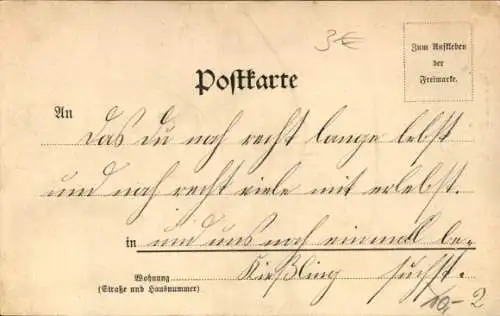 3€
Zum Aufkleben
der
Freimarke.
Postkarte
An
Das du noch recht lange lebst
und noch recht viele mit erlebst.
in und uns noch einmal be-
Kießling suchst.
Wohnung
(Straße und Hausnummer)
10,- 2